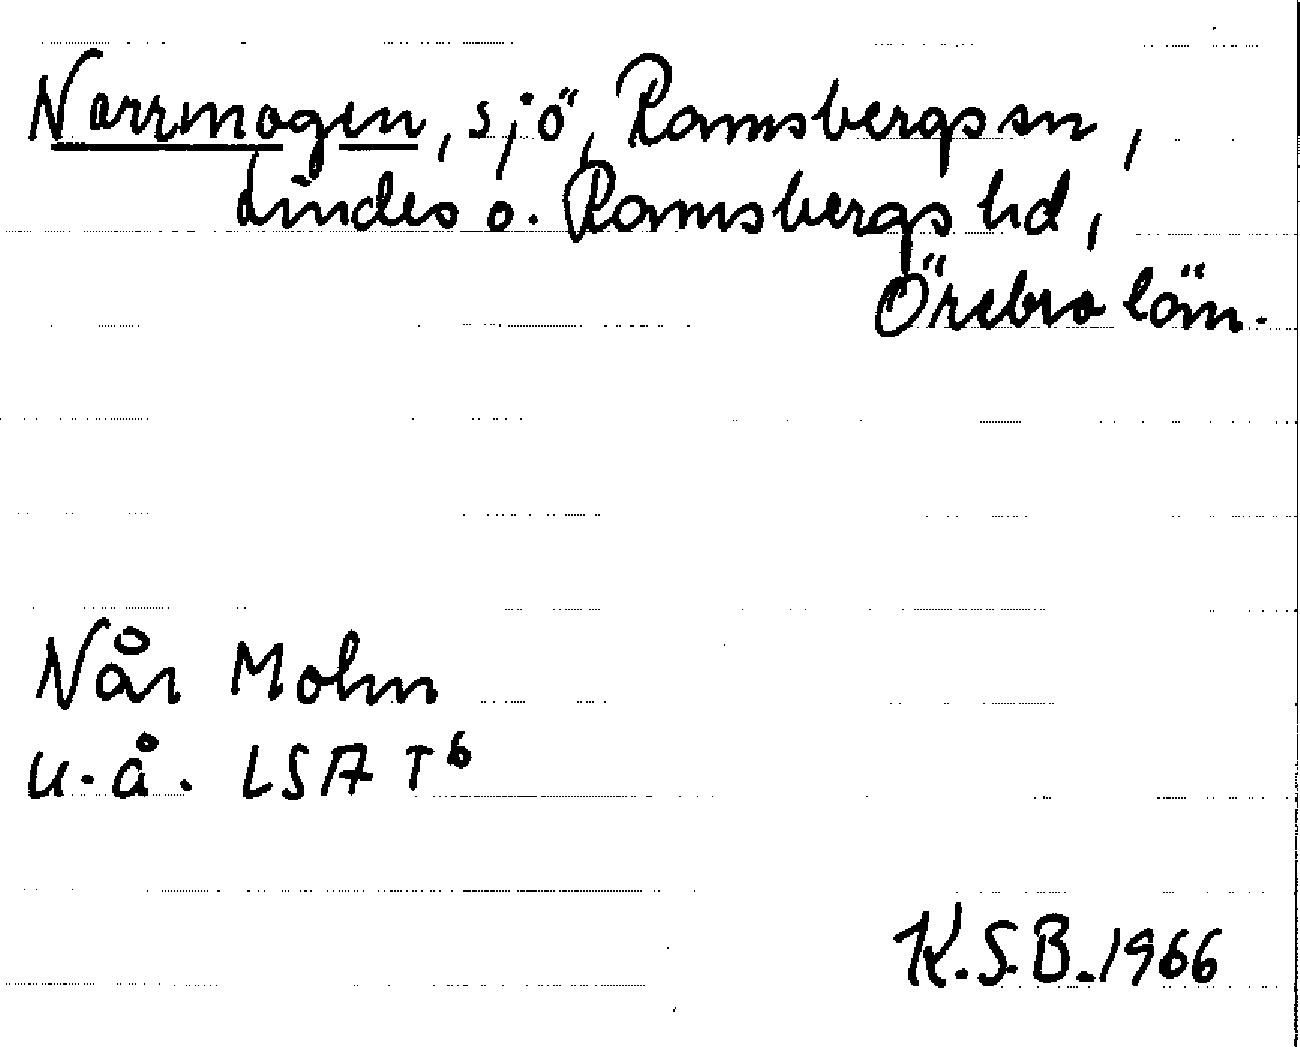 Norrmogen, sjö, Ramsbergs sn,
Lindes o. Ramsbergs hd,
Örebro län.
Når Mohn
u.å. LSA T6
K.S.B. 1966